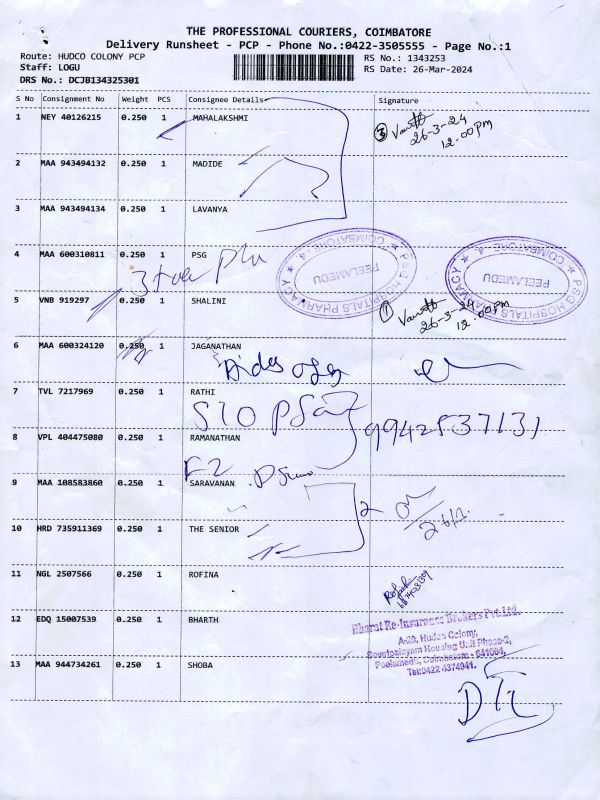 THE PROFESSIONAL COURIERS, COIMBATORE
Delivery Runsheet - PCP - Phone No.:0422-3505555 - Page No.:1
Route: HUDCO COLONY PCP
Staff: LOGU
DRS No.: DCJB134325301
RS No.: 1343253
RS Date: 26-Mar-2024
S No Consignment No Weight PCS Consignee Details Signature
1 NEY 40126215 0.250 1 MAHALAKSHMI
③ 26-3-24
12.00pm
2 MAA 943494132 0.250 1 MADIDE
3 MAA 943494134 0.250 1 LAVANYA
4 MAA 600310811 0.250 1 PSG
PSG HOSPITALS PHARMACY
PEELAMEDU
COIMBATORE - 4.
PSG HOSPITALS PHARMACY
PEELAMEDU
COIMBATORE - 4.
5 VNB 919297 0.250 1 SHALINI
① 26-3-24
12.00pm
6 MAA 600324120 0.250 1 JAGANATHAN
7 TVL 7217969 0.250 1 RATHI
S10
9942537131
8 VPL 404475080 0.250 1 RAMANATHAN
F2
9 MAA 108583860 0.250 1 SARAVANAN
2
10 HRD 735911369 0.250 1 THE SENIOR
11 NGL 2507566 0.250 1 ROFINA
12 EDQ 15007539 0.250 1 BHARTH
Bharat Re-Insurance Brokers Pvt. Ltd.
A-20, Hudco Colony,
Sowripalayam Housing Unit Phase-2,
Peelamedu, Coimbatore - 641004.
Tel:0422 4374941.
13 MAA 944734261 0.250 1 SHOBA